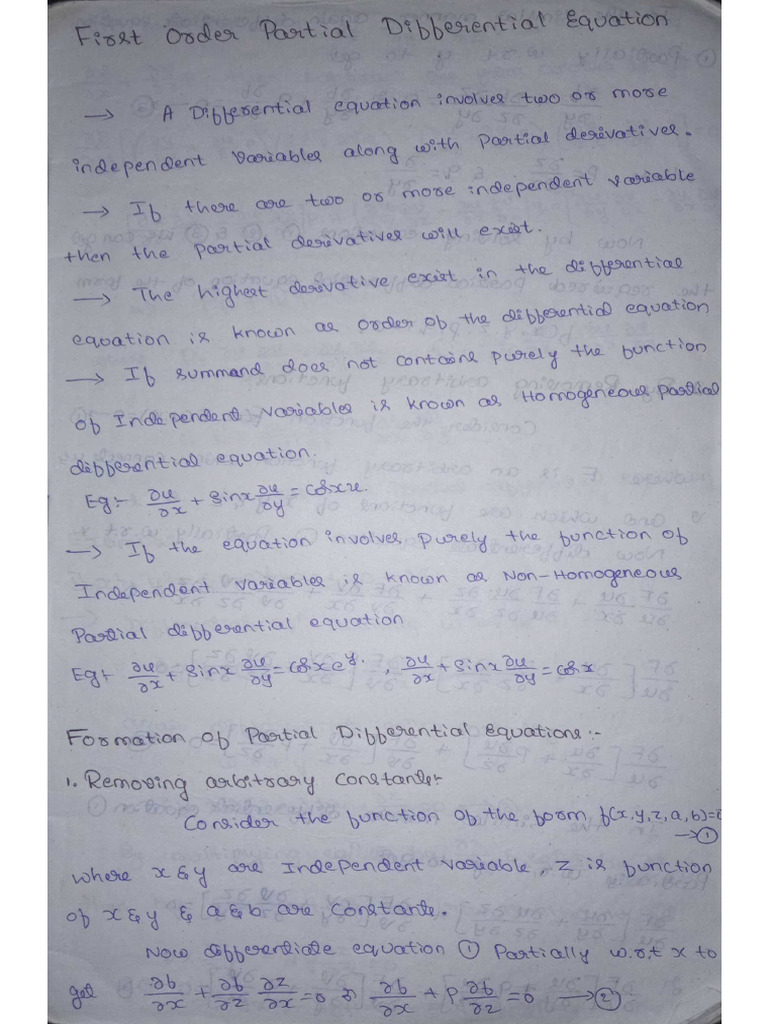 First Order Partial Differential Equation
→ A Differential equation involves two or more
independent variables along with Partial derivatives.
→ If there are two or more independent variable
then the partial derivatives will exist.
→ The highest derivative exist in the differential
equation is known as order of the differential equation
→ If summand does not contains purely the function
of Independent variables is known as Homogeneous Partial
differential equation.
Eg:- ∂u/∂x + sinx ∂u/∂y = cosx u.
→ If the equation involves purely the function of
Independent variables is known as Non-Homogeneous
Partial differential equation
Eg:- ∂u/∂x + sinx ∂u/∂y = cosx e^y. , ∂u/∂x + sinx ∂u/∂y = cosx
Formation of Partial Differential Equations:-
1. Removing arbitrary constants:-
Consider the function of the form f(x,y,z,a,b)=0
→①
where x & y are Independent variable, z is function
of x & y & a & b are constants.
Now differentiate equation ① Partially w.r.t x to
get ∂f/∂x + ∂f/∂z ∂z/∂x = 0 or ∂f/∂x + p ∂f/∂z = 0 →②